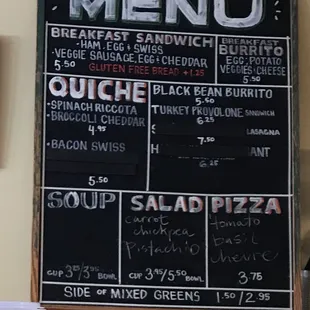 MENU
BREAKFAST SANDWICH
-HAM, EGG + SWISS
-VEGGIE SAUSAGE, EGG + CHEDDAR
5.50 GLUTEN FREE BREAD +1.25
BREAKFAST
BURRITO
EGG, POTATO
VEGGIES, CHEESE
5.50
QUICHE
-SPINACH RICOTTA
-BROCCOLI CHEDDAR
4.95
-BACON SWISS
5.50
BLACK BEAN BURRITO
5.50
TURKEY PROVOLONE SANDWICH
6.25
LASAGNA
7.50
6.25
SOUP
CUP BOWL
SALAD
carrot
chickpea
Pistachio
CUP 3.95/5.50 BOWL
PIZZA
tomato
basil
chevre
3.75
SIDE OF MIXED GREENS 1.50/2.95